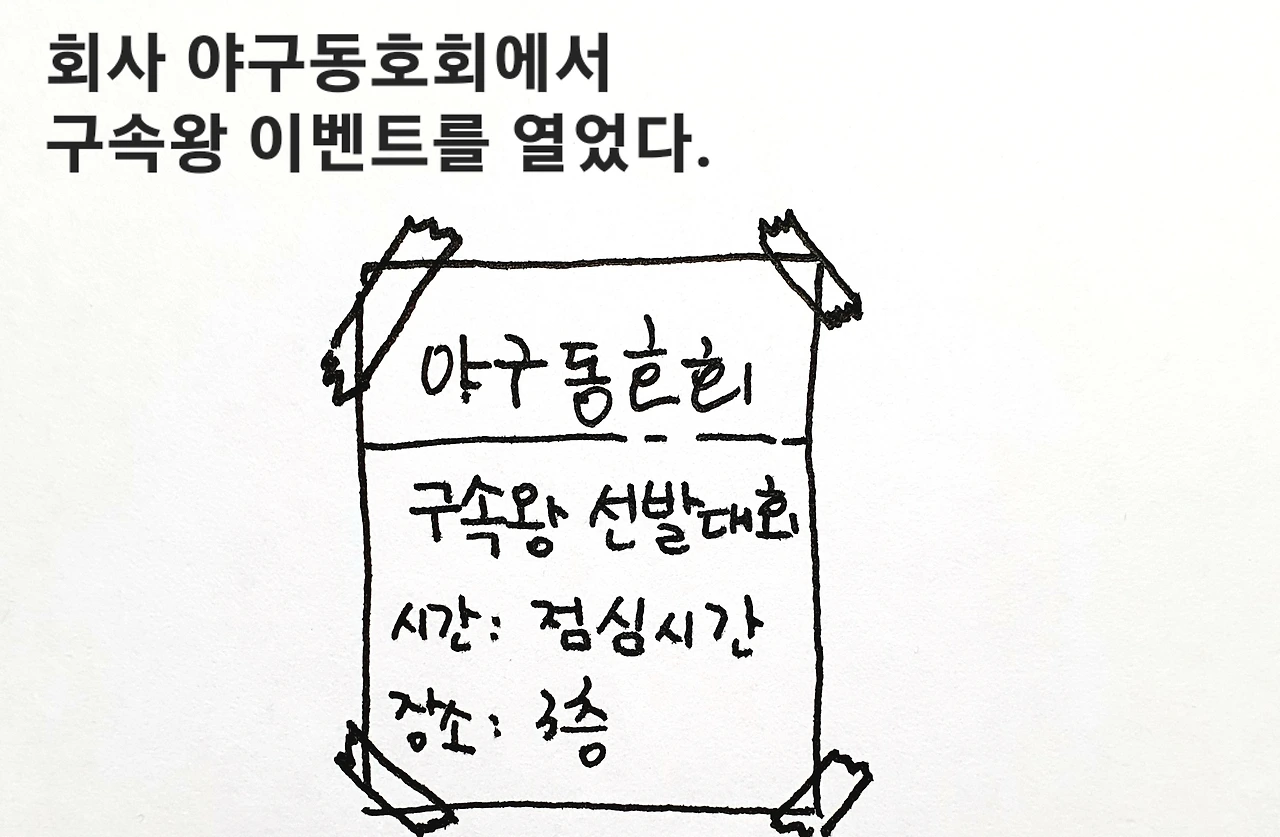 회사 야구동호회에서
구속왕 이벤트를 열었다.
야구동호회
구속왕 선발대회
시간: 점심시간
장소: 3층